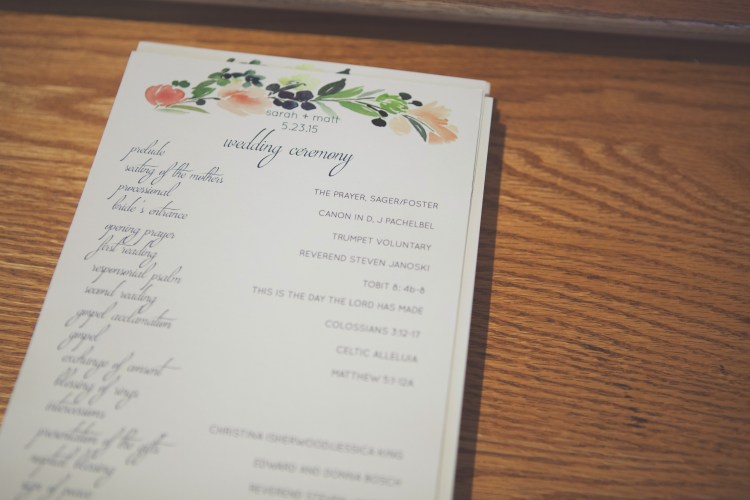 sarah + matt
5.23.15
wedding ceremony
prelude
seating of the mothers THE PRAYER, SAGER/FOSTER
processional CANON IN D, J PACHELBEL
bride's entrance TRUMPET VOLUNTARY
opening prayer REVEREND STEVEN JANOSKI
first reading TOBIT 8; 4b-8
responsorial psalm THIS IS THE DAY THE LORD HAS MADE
second reading COLOSSIANS 3:12-17
gospel acclamation CELTIC ALLELUIA
gospel MATTHEW 5:1-12A
exchange of consent
blessing of rings
intercessions CHRISTINA ISHERWOOD/JESSICA KING
presentation of the gifts EDWARD AND DONNA BOSCH
nuptial blessing REVEREND STEVEN
sign of peace